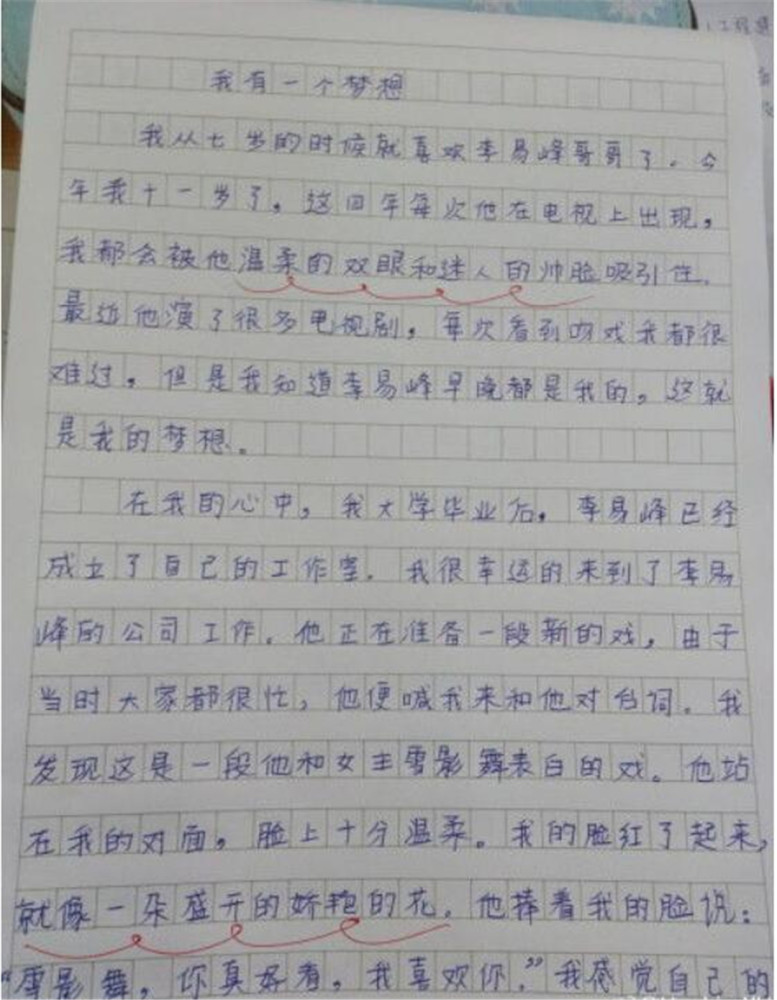 我有一个梦想
我从七岁的时候就喜欢李易峰哥哥了。今
年我十一岁了。这四年每次他在电视上出现，
我都会被他温柔的双眼和迷人的帅脸吸引住。
最近他演了很多电视剧，每次看到吻戏我都很
难过，但是我知道李易峰早晚都是我的，这就
是我的梦想。
在我的心中，我大学毕业后，李易峰已经
成立了自己的工作室。我很幸运的来到了李易
峰的公司工作。他正在准备一段新的戏，由于
当时大家都很忙，他便喊我来和他对台词。我
发现这是一段他和女主雪影舞表白的戏。他站
在我的对面，脸上十分温柔。我的脸红了起来，
就像一朵盛开的娇艳的花。他捧着我的脸说：
“雪影舞，你真好看，我喜欢你。”我感觉自己的